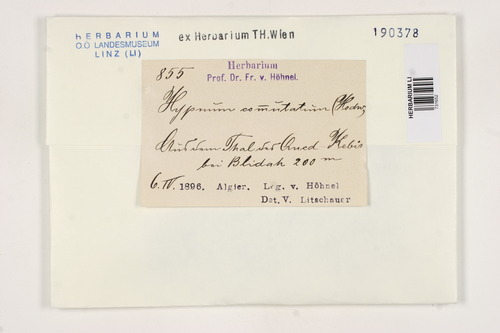 HERBARIUM
O.Ö LANDESMUSEUM
LINZ (LI)
ex Herbarium TH.Wien
190378
HERBARIUM LI
855
Herbarium
Prof. Dr. Fr. v. Höhnel.
Hypnum com̅utatum (Hedw.
Aus dem Thal des Oued Kebir
bei Blidah 200 m
6. IV. 1896. Algier. Leg. v. Höhnel
Det. V. Litschauer